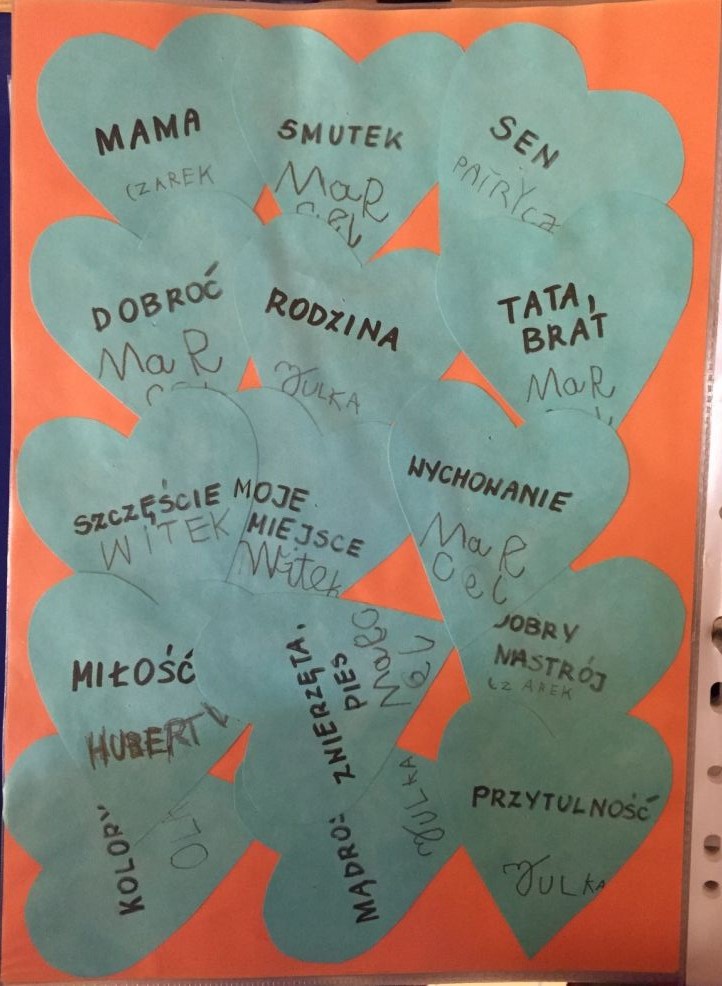 MAMA
CZAREK
SMUTEK
MaR
cel
SEN
PATRYcz
DOBROĆ
MaR
cel
RODZINA
JULKA
TATA,
BRAT
MaR
SZCZĘŚCIE
WITEK
MOJE
MIEJSCE
Witek
WYCHOWANIE
MaR
cel
MIŁOŚĆ
HUBERT
ZWIERZĘTA,
PIES
DOBRY
NASTRÓJ
CZAREK
KOLORY
JULKA
PRZYTULNOŚĆ
JULKA